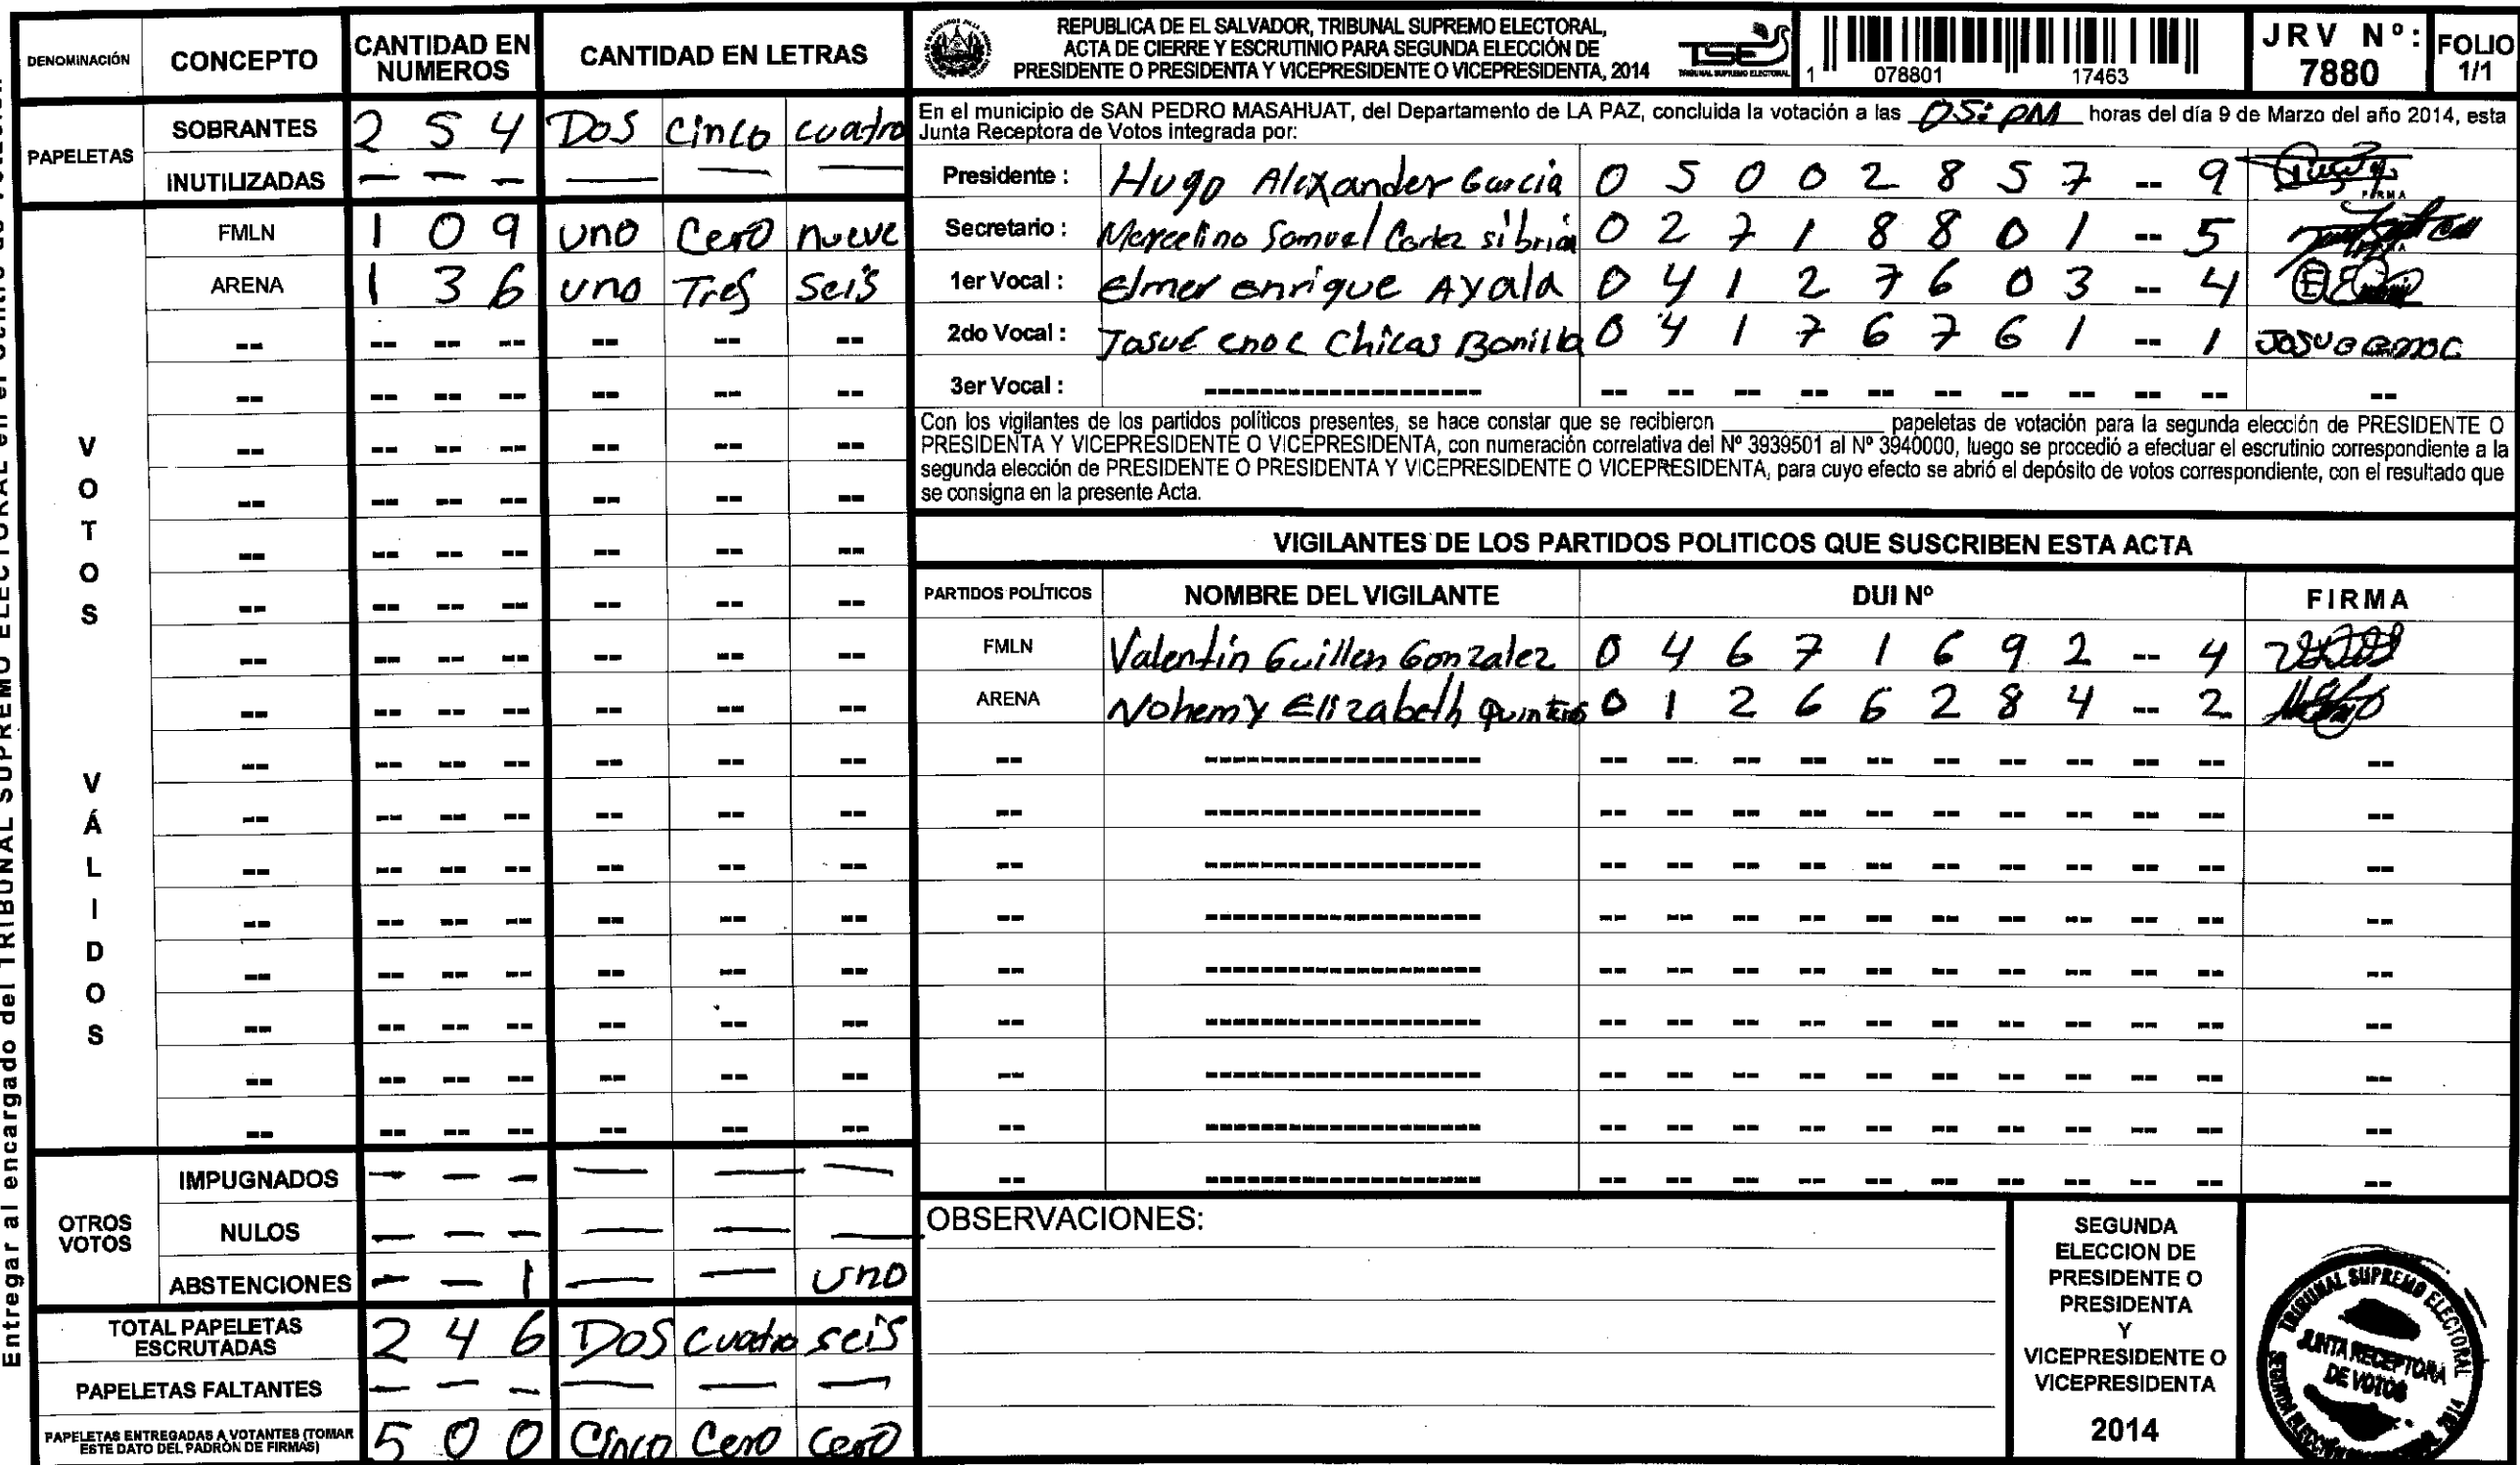 Entregar al encargado del TRIBUNAL SUPREMO ELECTORAL en el
DENOMINACIÓN CONCEPTO CANTIDAD EN NUMEROS CANTIDAD EN LETRAS
PAPELETAS
SOBRANTES 2 5 4 DOS cinco cuatro
INUTILIZADAS — — — — — —
VOTOS VÁLIDOS
FMLN 1 0 9 uno Cero nueve
ARENA 1 3 6 uno Tres Seis
-- -- -- -- -- -- --
-- -- -- -- -- -- --
-- -- -- -- -- -- --
-- -- -- -- -- -- --
-- -- -- -- -- -- --
-- -- -- -- -- -- --
-- -- -- -- -- -- --
-- -- -- -- -- -- --
-- -- -- -- -- -- --
-- -- -- -- -- -- --
-- -- -- -- -- -- --
-- -- -- -- -- -- --
-- -- -- -- -- -- --
-- -- -- -- -- -- --
-- -- -- -- -- -- --
-- -- -- -- -- -- --
OTROS VOTOS
IMPUGNADOS — — — — — —
NULOS — — — — — —
ABSTENCIONES — — 1 — — uno
TOTAL PAPELETAS ESCRUTADAS 2 4 6 DOS cuatro seis
PAPELETAS FALTANTES — — — — — —
PAPELETAS ENTREGADAS A VOTANTES (TOMAR ESTE DATO DEL PADRÓN DE FIRMAS) 5 0 0 Cinco Cero Cero
REPUBLICA DE EL SALVADOR, TRIBUNAL SUPREMO ELECTORAL,
ACTA DE CIERRE Y ESCRUTINIO PARA SEGUNDA ELECCIÓN DE
PRESIDENTE O PRESIDENTA Y VICEPRESIDENTE O VICEPRESIDENTA, 2014
TSE
TRIBUNAL SUPREMO ELECTORAL
1 078801 17463
JRV Nº: 7880
FOLIO 1/1
En el municipio de SAN PEDRO MASAHUAT, del Departamento de LA PAZ, concluida la votación a las 05: PM horas del día 9 de Marzo del año 2014, esta
Junta Receptora de Votos integrada por:
Presidente : Hugo Alexander Garcia 0 5 0 0 2 8 5 7 -- 9
FIRMA
Secretario : Marcelino Samuel Cortez sibrian 0 2 7 1 8 8 0 1 -- 5
1er Vocal : Elmer enrique Ayala 0 4 1 2 7 6 0 3 -- 4
2do Vocal : Josué enoc Chicas Bonilla 0 4 1 7 6 7 6 1 -- 1 Josue enoc
3er Vocal : ------------------ -- -- -- -- -- -- -- -- -- -- --
Con los vigilantes de los partidos políticos presentes, se hace constar que se recibieron ________ papeletas de votación para la segunda elección de PRESIDENTE O
PRESIDENTA Y VICEPRESIDENTE O VICEPRESIDENTA, con numeración correlativa del Nº 3939501 al Nº 3940000, luego se procedió a efectuar el escrutinio correspondiente a la
segunda elección de PRESIDENTE O PRESIDENTA Y VICEPRESIDENTE O VICEPRESIDENTA, para cuyo efecto se abrió el depósito de votos correspondiente, con el resultado que
se consigna en la presente Acta.
VIGILANTES DE LOS PARTIDOS POLITICOS QUE SUSCRIBEN ESTA ACTA
PARTIDOS POLÍTICOS NOMBRE DEL VIGILANTE DUI Nº FIRMA
FMLN Valentin Guillen Gonzalez 0 4 6 7 1 6 9 2 -- 4
ARENA Nohemy Elizabeth Quinteros 0 1 2 6 6 2 8 4 -- 2
-- ------------------ -- -- -- -- -- -- -- -- -- -- --
-- ------------------ -- -- -- -- -- -- -- -- -- -- --
-- ------------------ -- -- -- -- -- -- -- -- -- -- --
-- ------------------ -- -- -- -- -- -- -- -- -- -- --
-- ------------------ -- -- -- -- -- -- -- -- -- -- --
-- ------------------ -- -- -- -- -- -- -- -- -- -- --
-- ------------------ -- -- -- -- -- -- -- -- -- -- --
-- ------------------ -- -- -- -- -- -- -- -- -- -- --
-- ------------------ -- -- -- -- -- -- -- -- -- -- --
OBSERVACIONES:
SEGUNDA
ELECCION DE
PRESIDENTE O
PRESIDENTA
Y
VICEPRESIDENTE O
VICEPRESIDENTA
2014
TRIBUNAL SUPREMO ELECTORAL
JUNTA RECEPTORA
DE VOTOS
SEGUNDA ELECCIÓN 2014